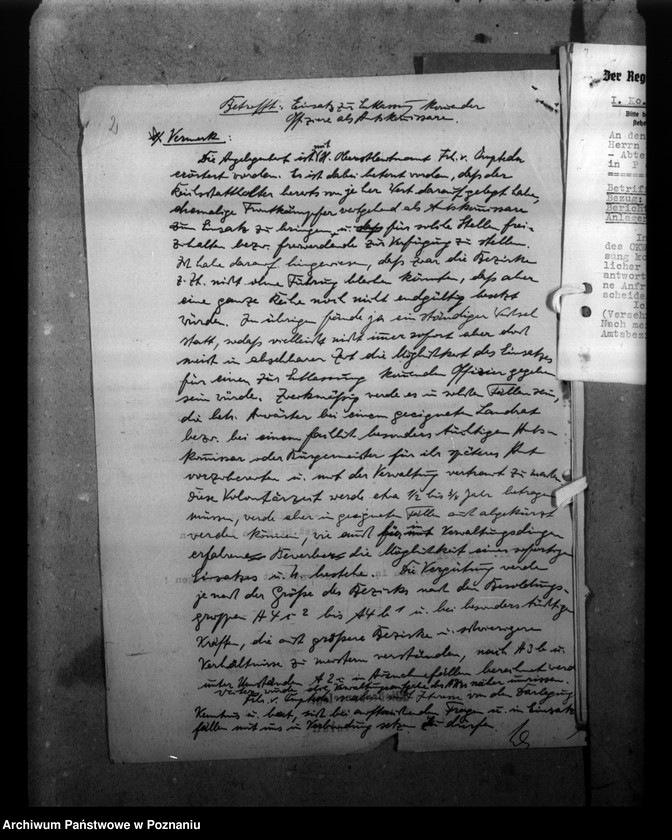 2
Betrifft: Einsatz zur Entlassung kommender
Offiziere als Amtskommissare.
1/ Vermerk:
Die Angelegenheit ist mit H. Oberstleutnant Frh. v.
erörtert worden. Es ist dabei betont worden, daß der
Reichsstatthalter bereits von je her Wert darauf gelegt habe,
ehemalige Frontkämpfer weitgehend als Amtskommissare
zum Einsatz zu bringen u. für solche Stellen frei-
zuhalten bezw. freiwerdende zur Verfügung zu stellen.
Ich habe darauf hingewiesen, daß zwar die Bezirke
z. Zt. nicht ohne Führung bleiben könnten, daß aber
eine ganze Reihe noch nicht endgültig besetzt
würden. Im übrigen fände ja ein ständiger Wechsel
statt, sodaß vielleicht nicht immer sofort aber doch
meist in absehbarer Zeit die Möglichkeit des Einsatzes
für einen zur Entlassung kommenden Offizier gegeben
sein würde. Zweckmäßig werde es in solchen Fällen sein,
die betr. Anwärter bei einem geeigneten Landrat
bezw. bei einem fachlich besonders tüchtigen Amts-
kommissar oder Bürgermeister für ihr späteres Amt
vorzubereiten u. mit der Verwaltung vertraut zu machen.
Diese Volontärzeit werde etwa 1/2 bis 3/4 Jahr betragen
müssen, werde aber in geeigneten Fällen auch abgekürzt
werden können, wie auch für in Verwaltungsdingen
erfahrene Bewerber die Möglichkeit eines sofortigen
Einsatzes u. U. bestehe. Die Vergütung werde
je nach der Größe des Bezirks nach den Besoldungs-
gruppen A 4 c 2 bis A 4 b 1 u. bei besonders tüchtigen
Kräften, die auch größere Bezirke u. schwierigere
Verhältnisse zu meistern verständen, nach A 3 b u.
unter Umständen A 2 in Ausnahmefällen berechnet werden.
Weiter wurde die Verwaltungsaufgabe des näher umrissen.
Frh. v. nahm mit Interesse von den Darlegungen
Kenntnis u. bat, sich bei auftretenden Fragen u. in Einsatz-
fällen mit uns in Verbindung setzen zu dürfen.
Der Reg
I. Ko.
Bitte
An den
Herrn
- Abte
in P
Betrifft
Bezug:
Bericht
Anlagen
In
des OKW
sung ko
licher
antwort
ne Anfr
scheide
Ic
(Versch
Nach me
Amtsbez
Archiwum Państwowe w Poznaniu